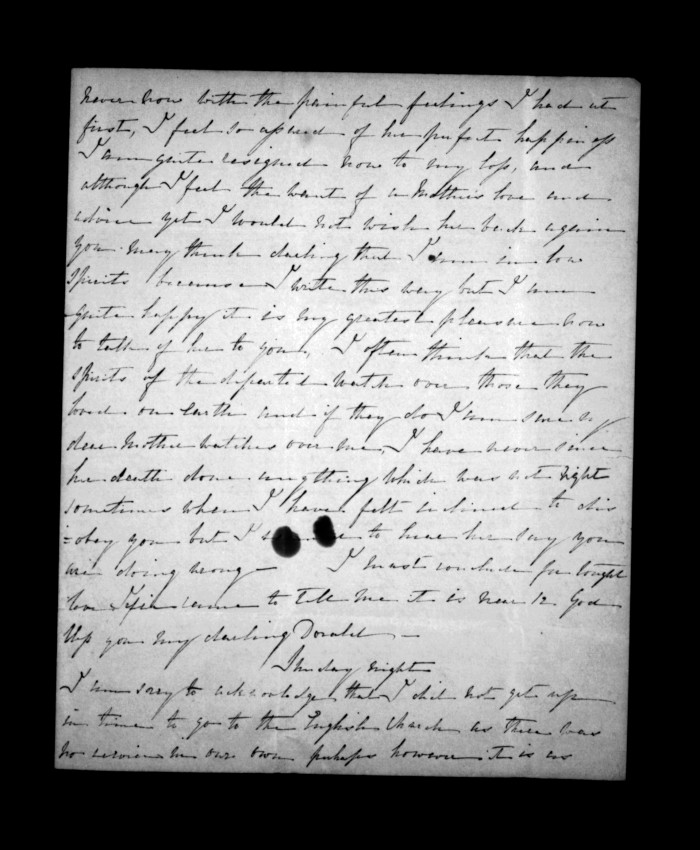 never now with the painful feelings I had at
first, I feel so assured of her perfect happiness
I am quite resigned now to my loss, and
although I feel the want of a Mothers love and
advice yet I would not wish her back again
you may think darling that I am in low
spirits because I write this way but I am
quite happy it is my greatest pleasure now
to talk of her to you, I often think that the
spirits of the departed watch over those they
loved on earth and if they do I am sure my
dear Mother watches over me, I have never since
her death done anything which was not right
sometimes when I have felt inclined to dis
=obey you but I to hear her say you
are doing wrong — I must conclude for tonight
has come to tell me it is near 12 God
bless you my darling Donald —
Sunday night
I am sorry to acknowledge that I did not get up
in time to go to the English Church as there was
no service in our own perhaps however it is as